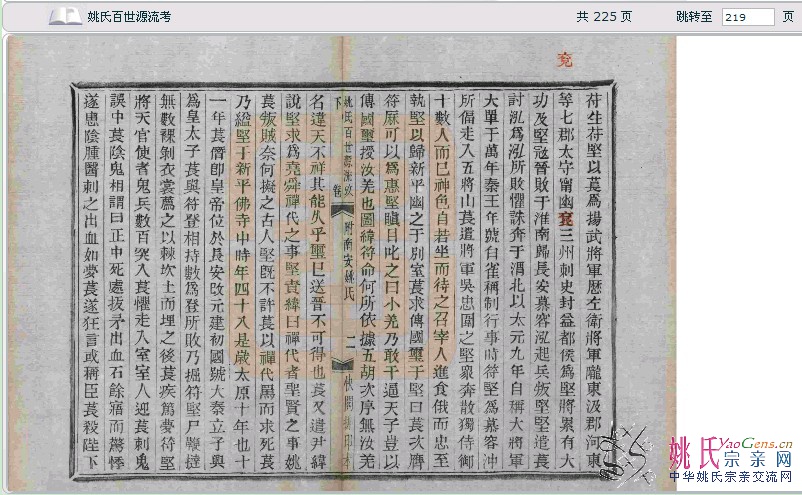 姚氏百世源流考
共 225 页
跳转至 219 页
兗
苻生苻堅以萇爲揚武將軍歷左衞將軍隴東汲郡河東
等七郡太守甯幽兗三州刺史封益都侯爲堅將累有大
功及堅冦晉敗于淮南歸長安慕容泓起兵叛堅堅遣萇
討泓爲泓所敗懼誅奔于渭北以太元九年自稱大將軍
大單于萬年秦王年號白雀稱制行事時苻堅爲慕容沖
所偪走入五將山萇遣將軍吳忠圍之堅衆奔散獨侍御
十數人而已神色自若坐而待之召宰人進食俄而忠至
執堅以歸新平幽之于別室萇求傳國璽于堅曰萇次膺
符厯可以爲惠堅瞋目叱之曰小羌乃敢干逼天子豈以
傳國璽授汝羌也圖緯符命何所依據五胡次序無汝羌
姚氏百世源流攷 卷下 附南安姚氏 二
名違天不祥其能久乎璽已送晉不可得也萇又遣尹緯
說堅求爲堯舜禪代之事堅責緯曰禪代者聖賢之事姚
萇叛賊奈何擬之古人堅旣不許萇以禪代罵而求死萇
乃縊堅于新平佛寺中時年四十八是歲太原十年也十
一年萇僭卽皇帝位於長安改元建初國號大秦立子與
爲皇太子萇與苻登相持數爲登所敗乃掘苻堅尸鞭撻
無數裸剝衣裳薦之以棘坎土而埋之後萇疾篤夢苻堅
將天官使者鬼兵數百突入萇懼走入室室人迎萇刺鬼
誤中萇陰鬼相謂曰正中死處拔矛出血石餘寤而驚悸
遂患陰腫醫刺之出血如夢萇遂狂言或稱臣萇殺陛下
姚氏宗亲网
YaoGens.cn
中华姚氏宗亲交流网